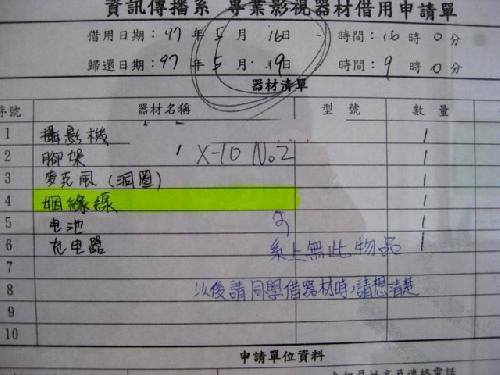 資訊傳播系 專業影視器材借用申請單
借用日期：97 年 5 月 16 日 時間：16 時 0 分
歸還日期：97 年 5 月 19 日 時間：9 時 0 分
器材清單
序號 器材名稱 型號 數量
1 攝影機 1
2 腳架 X-10 No.2 1
3 麥克風（ 1
4 姻緣線 1
5 电池 1
6 充电器 系上無此物品 1
7
8 以後請同學借器材時，請想清楚
9
10
申請單位資料